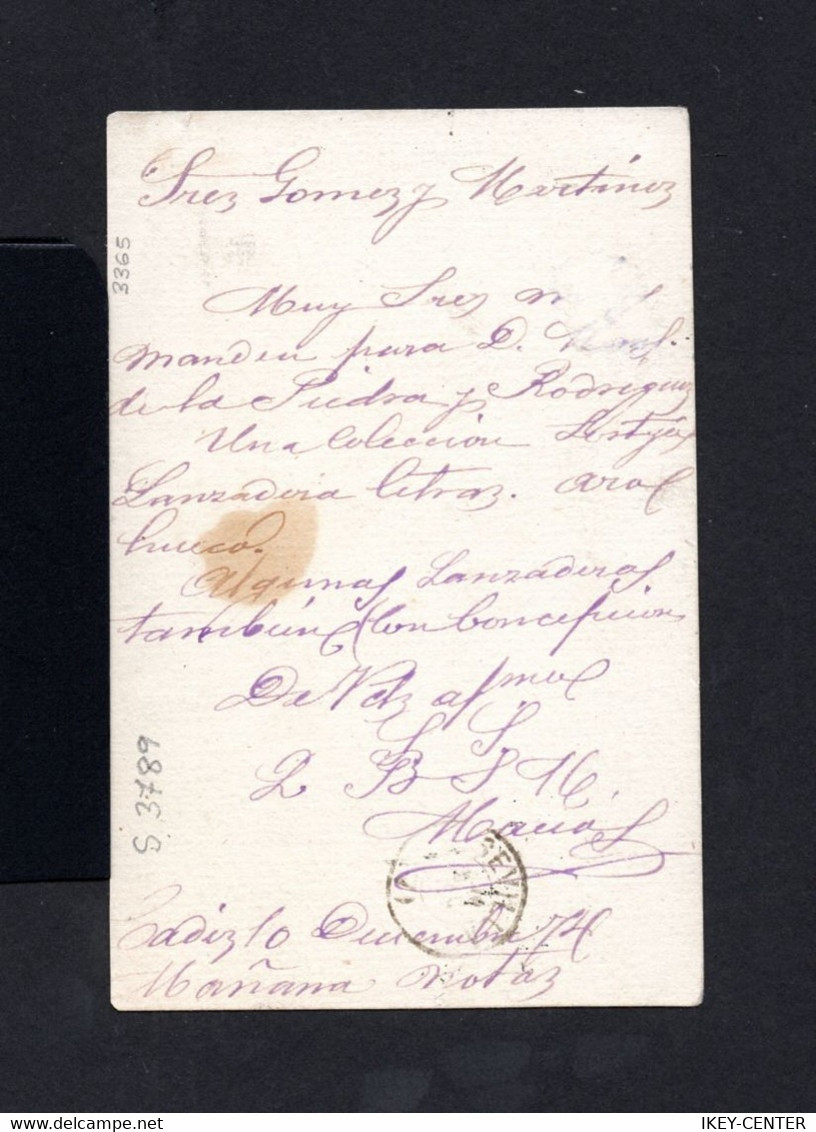 Sres Gomez y Martinez
3365
Muy Sres m
manden para D.
de la Piedra y Rodriguez
Una Coleccion
Lanzadera letras. aro
hueco.
Algunas Lanzaderas
tambien Con Concepcion
De Vdz afmo
S S
Q B S M.
Macias
S 3789
SEVILLA
Cadiz 10 Diciembre 74
Mañana notas
delcampe.net
IKEY-CENTER